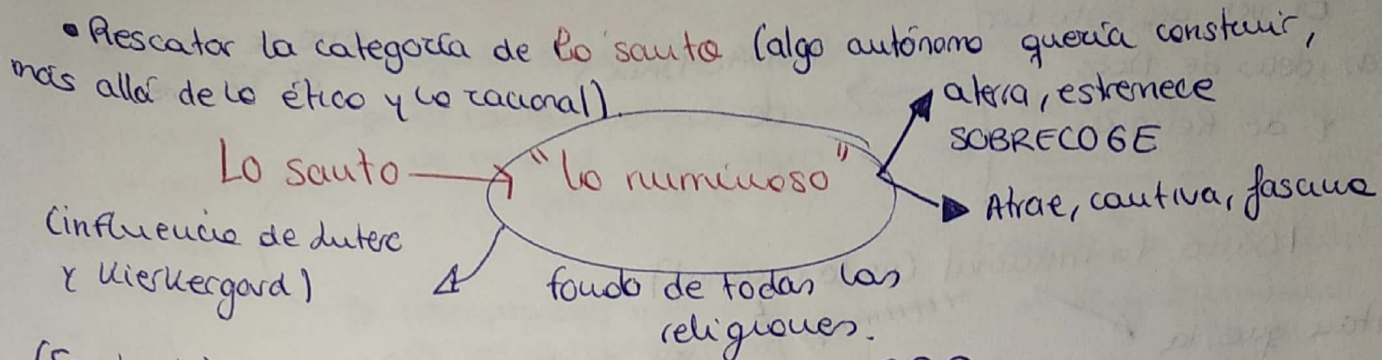 • Rescatar la categoría de lo santo (algo autónomo quería construir,
más allá de lo ético y lo racional).
aterra, estremece
SOBRECOGE
Lo santo → "lo numinoso"
Atrae, cautiva, fascina
(influencia de Lutero
y Kierkergard)
fondo de todas las
religiones.